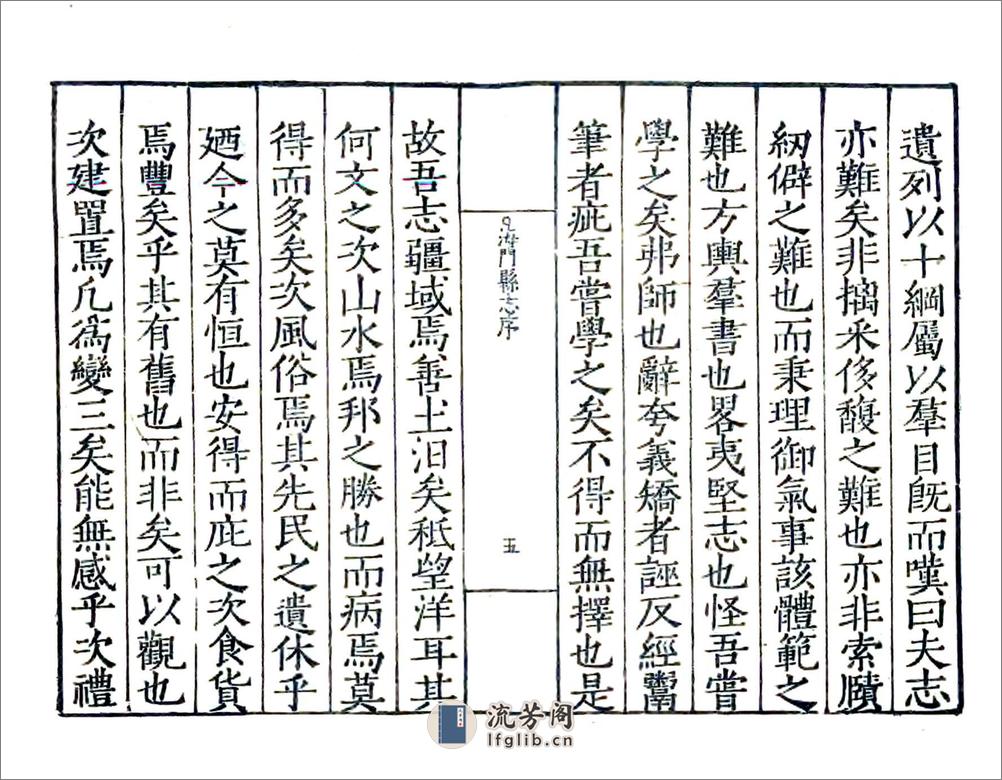 遺列以十綱屬以羣目旣而嘆曰夫志
亦難矣非摛采侈馥之難也亦非索賾
紉僻之難也而秉理御氣事該體範之
難也方輿羣書也畧夷堅志也怪吾嘗
學之矣弗師也辭夸義矯者誣反經鬻
筆者疵吾嘗學之矣不得而無擇也是
海門縣志序
五
故吾志疆域焉善土汨矣秪望洋耳其
何文之次山水焉邦之勝也而病焉莫
得而多矣次風俗焉其先民之遺休乎
廼今之莫有恒也安得而庇之次食貨
焉豐矣乎其有舊也而非矣可以觀也
次建置焉凡爲變三矣能無感乎次禮
流芳阁
lfglib.cn